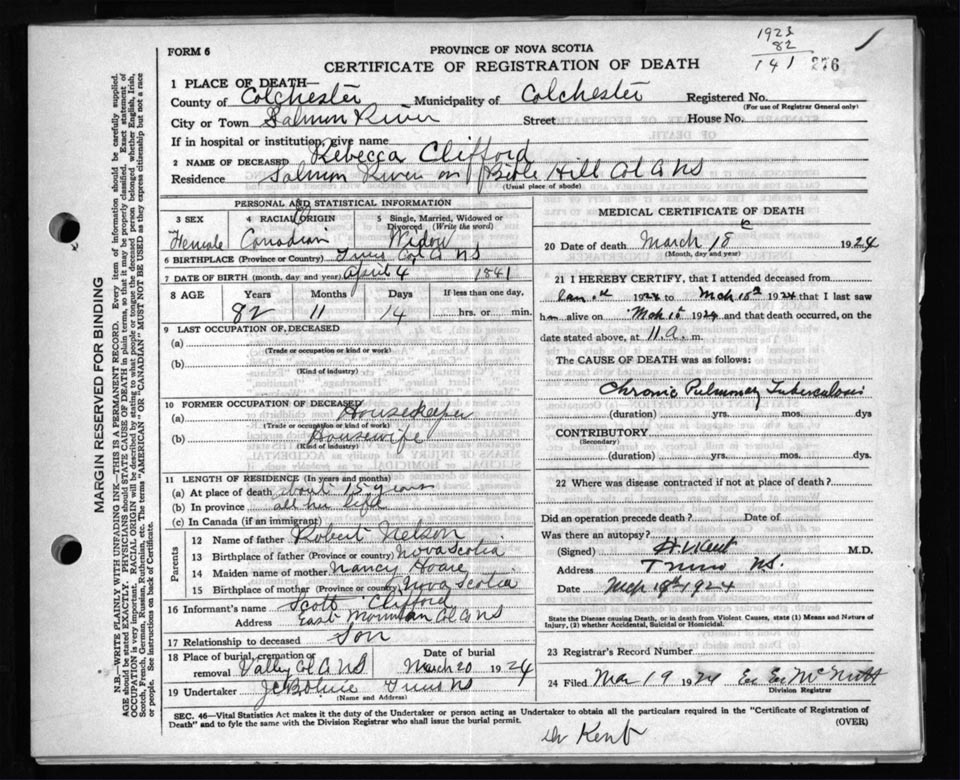 1923
82
141 276
FORM 6
PROVINCE OF NOVA SCOTIA
CERTIFICATE OF REGISTRATION OF DEATH
1 PLACE OF DEATH—
County of Colchester Municipality of Colchester Registered No.
(For use of Registrar General only)
City or Town Salmon River Street House No.
If in hospital or institution, give name
2 NAME OF DECEASED Rebecca Clifford
Residence Salmon River on Bible Hill Col Co NS
(Usual place of abode)
PERSONAL AND STATISTICAL INFORMATION
3 SEX
Female
4 RACIAL ORIGIN
Canadian
5 Single, Married, Widowed or Divorced (Write the word)
Widow
6 BIRTHPLACE (Province or Country) Truro Col Co NS
7 DATE OF BIRTH (month, day, and year) April 4 1841
8 AGE Years Months Days If less than one day,
82 11 14 hrs. or min.
9 LAST OCCUPATION OF DECEASED
(a)
(Trade or occupation or kind or work)
(b)
(Kind of industry)
10 FORMER OCCUPATION OF DECEASED
(a) Housekeeper
(Trade or occupation or kind or work)
(b) Housewife
(Kind of industry)
11 LENGTH OF RESIDENCE (In years and months)
(a) At place of death about 15 years
(b) In province all her life
(c) In Canada (if an immigrant)
Parents
12 Name of father Robert Nelson
13 Birthplace of father (Province or country) Nova Scotia
14 Maiden name of mother Nancy Hoare
15 Birthplace of mother (Province or country) Nova Scotia
16 Informant's name Scott Clifford
Address East Mountain Col Co NS
17 Relationship to deceased Son
18 Place of burial, cremation or removal Valley Col Co NS
Date of burial March 20 1924
19 Undertaker Truro NS
(Name and Address)
MEDICAL CERTIFICATE OF DEATH
20 Date of death March 18 1924
(Month, day and year)
21 I HEREBY CERTIFY, that I attended deceased from
1924 to Mch 18th 1924 that I last saw
h alive on Mch 1924 and that death occurred, on
date stated above, at 11.a. m.
The CAUSE OF DEATH was as follows:
Chronic Pulmonary Tuberculosis
(duration) yrs. mos. dys
CONTRIBUTORY
(Secondary)
(duration) yrs. mos. dys.
22 Where was disease contracted if not at place of death?
Did an operation precede death? Date of
Was there an autopsy?
(Signed) Kent M.D.
Address Truro NS.
Date Mch 18th 1924
State the Disease causing Death, or in death from Violent Causes, state (1) Means and Nature of
Injury, (2) whether Accidental, Suicidal or Homicidal.
23 Registrar's Record Number
24 Filed Mar 19 1924 McNutt
Division Registrar
SEC. 46—Vital Statistics Act makes it the duty of the Undertaker or person acting as Undertaker to obtain all the particulars required in the "Certificate of Registration of
Death" and to fyle the same with the Division Registrar who shall issue the burial permit.
(OVER)
Dr Kent
MARGIN RESERVED FOR BINDING
N.B.—WRITE PLAINLY WITH UNFADING INK—THIS IS A PERMANENT RECORD. Every item of information should be carefully supplied.
AGE should be stated EXACTLY. PHYSICIANS should STATE CAUSE OF DEATH in plain terms, so that it may be properly classified. Exact statement of
OCCUPATION is very important. RACIAL ORIGIN will be described by stating to what people or tongue the deceased person belonged whether English, Irish,
Scotch, French, German, Russian, Ruthenian, etc. The terms "AMERICAN" OR "CANADIAN" MUST NOT BE USED as they express citizenship but not a race
or people. See instructions on back of Certificate.